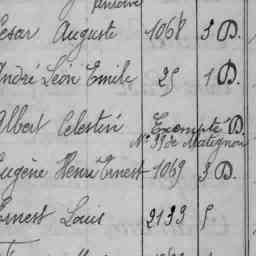 César Auguste 1068 3 D.
André Léon Emile 25 1 D.
Albert Celestin Exempté D.
N° 39 de Matignon
Eugène Henri Ernest 1069 3 D.
Ernest Louis 2133 5